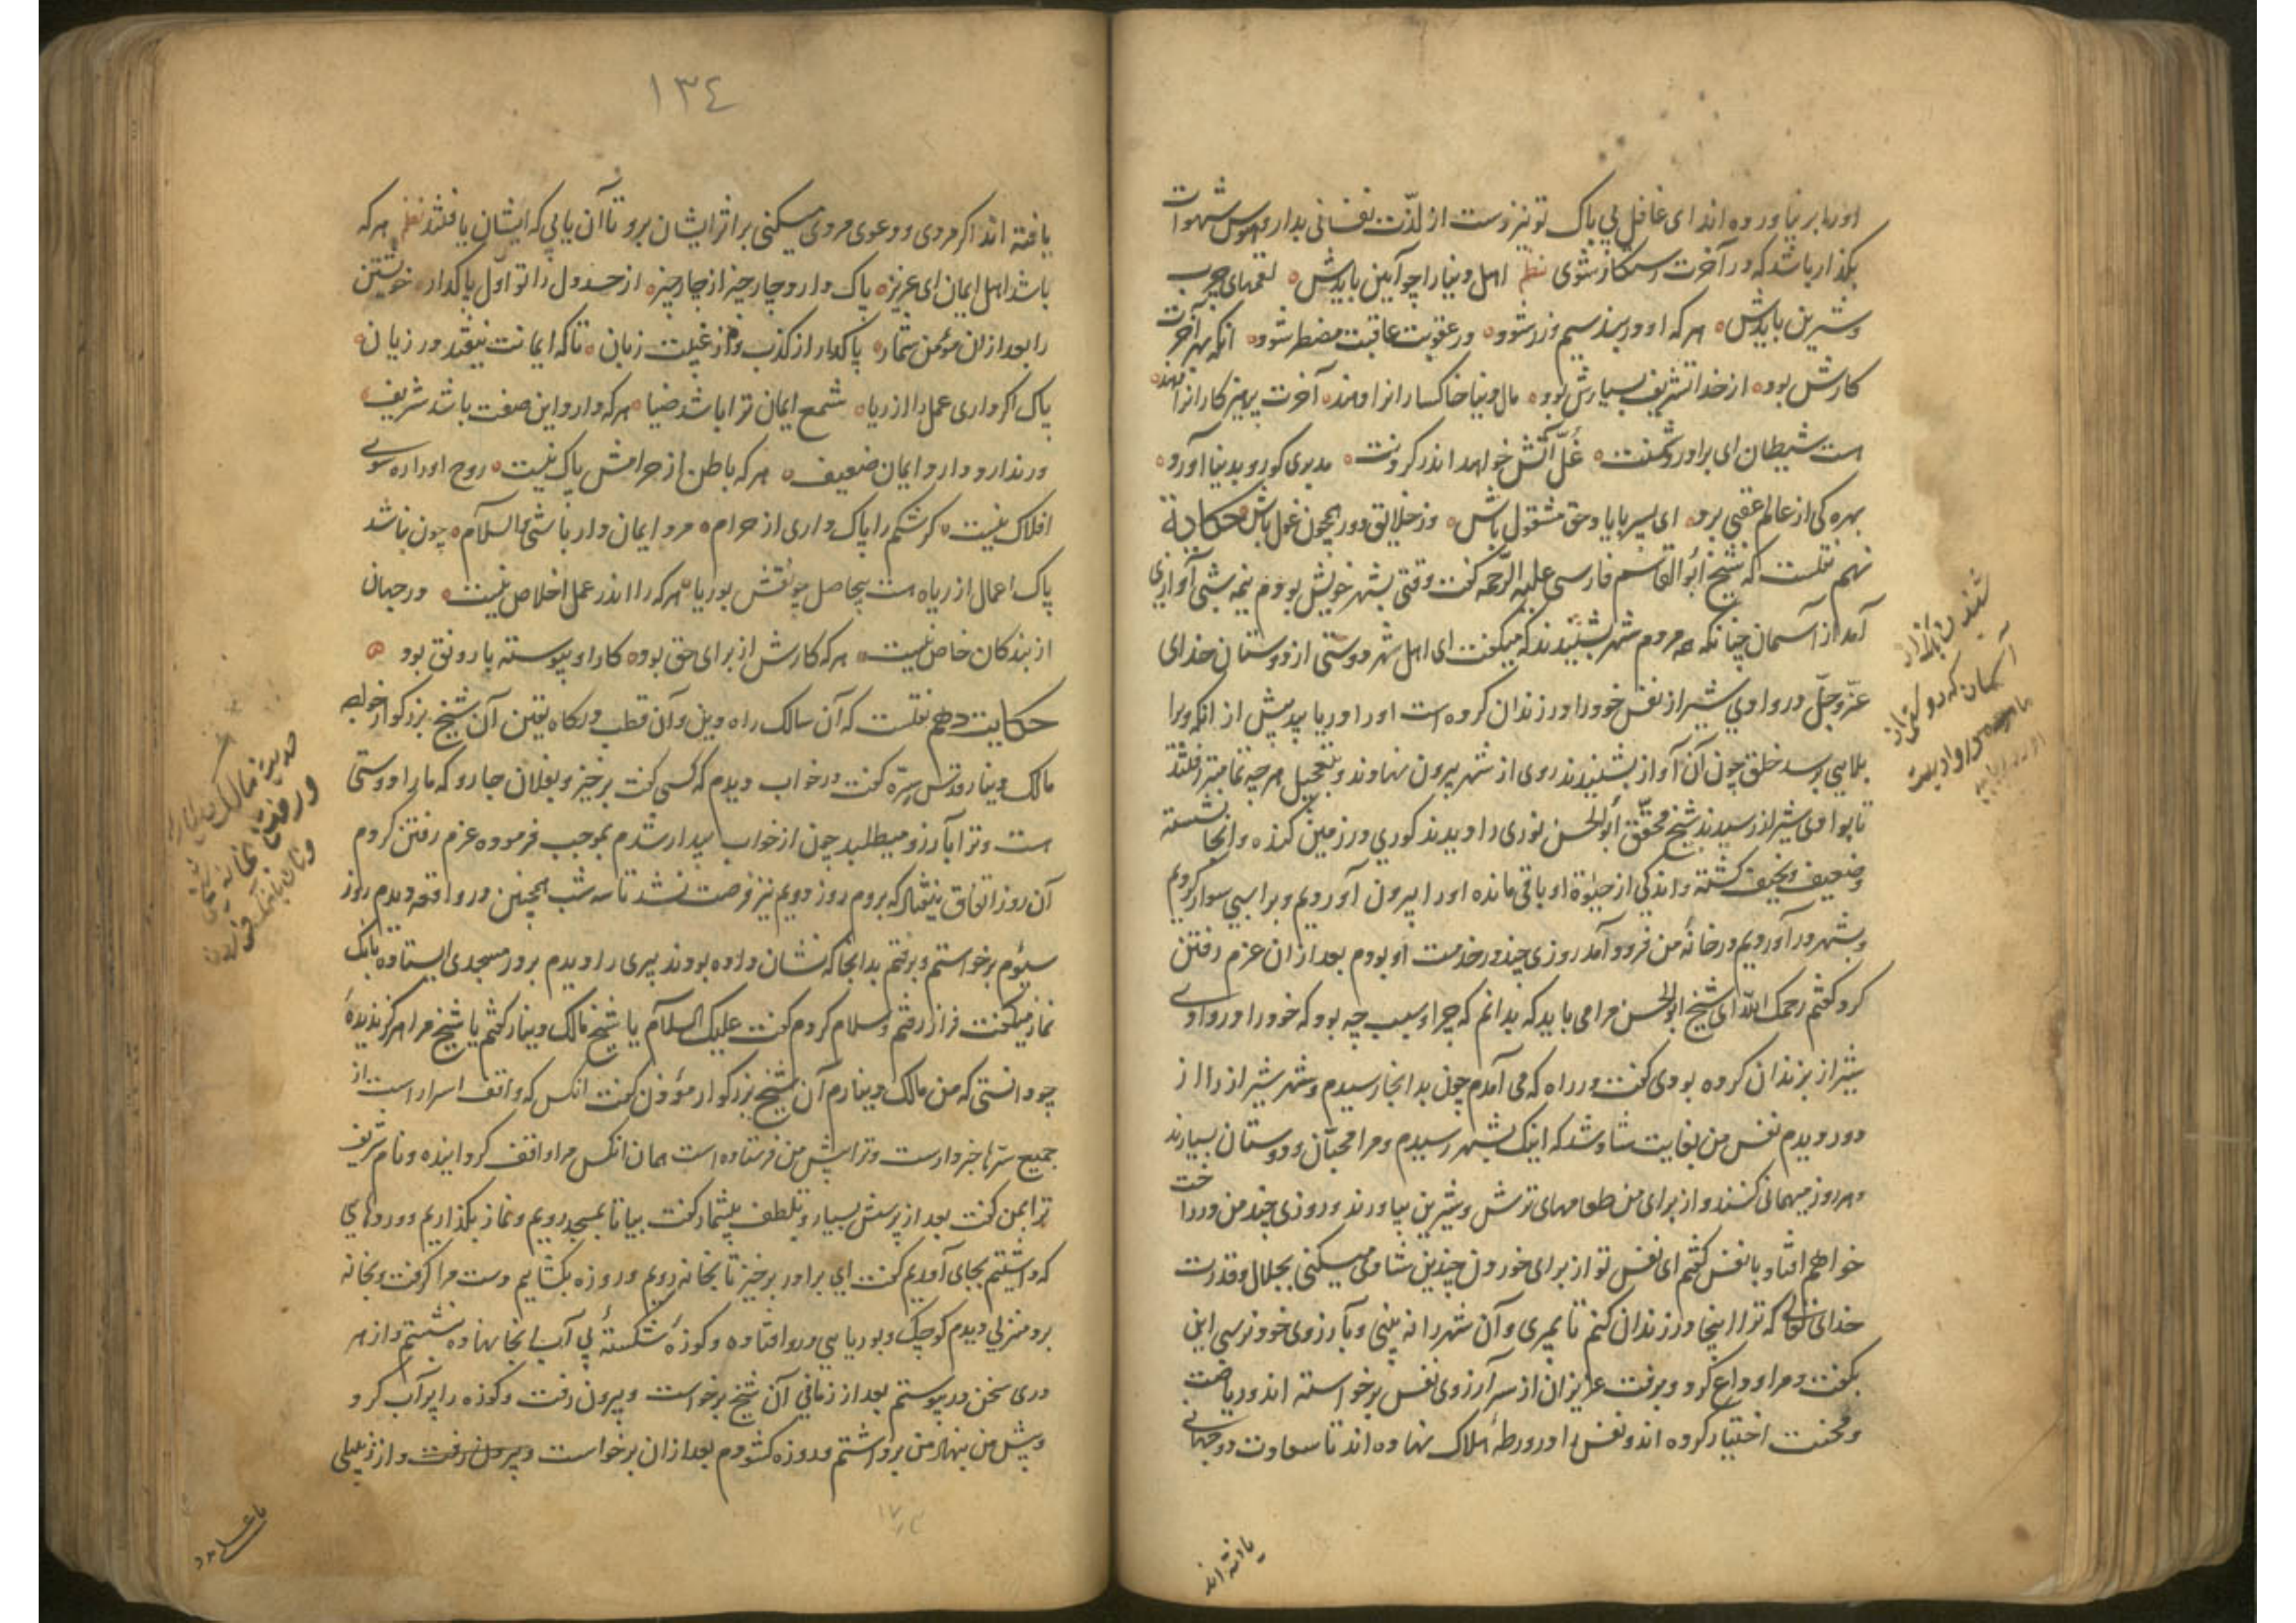 او را بر نیاورده اند ای غافل بی باک تو نیز دست از لذّت نفسانی بدار و هوس شهوات
بگذار باشد که در آخرت رستگار شوی نظم اهل دنیا را چو آیین بایدش لقمهای چرب
و شیرین بایدش هر که او در بند سیم و زر شود در عقوبت عاقبت مضطر شود انکه بهر آخرت
کارش بود از خدا تشریف بسیارش بود مال دنیا خاکسارانرا دهند آخرت پرهیزکارانرا دهند
هست شیطان ای برادر دشمنت غلّ آتش خواهد اندر گردنت مدبری کو رو بدنیا آورد
بهره کی از عالم عقبی برد ای پسر با یاد حق مشغول باش وز خلایق دور همچون غول باش حکایة
نهم نقلست که شیخ ابو القاسم فارسی علیه الرّحمه گفت وقتی بشهر خویش بودم نیم شبی آوازی
آمد از آسمان چنانکه همه مردم شهر بشنیدند که میگفت ای اهل شهر دوستی از دوستان خدای
عزّ و جلّ در وادی شیراز نفس خود را در زندان کرده است او را دریابید پیش از انکه ویرا
بلایی رسد خلق چون آن آواز بشنیدند روی از شهر بیرون نهادند و بتعجیل هر چه تمامتر رفتند
تا بوادی شیراز رسیدند شیخ محقّق ابو الحسن نوری را دیدند کوری در زمین کنده و انجا نشسته
و ضعیف و نحیف گشته و اندکی از حیوة او باقی مانده او را بیرون آوردیم و بر اسبی سوار کردیم
و بشهر در آوردیم در خانۀ من فرود آمد روزی چند در خدمت او بودم بعد از ان عزم رفتن
کرد گفتم رحمک اللّه ای شیخ ابو الحسن مرا می باید که بدانم که چرا و سبب چه بود که خود را در وادی
شیراز بزندان کرده بودی گفت در راه که می آمدم چون بدانجا رسیدم و شهر شیراز را از
دور دیدم نفس من بغایت شاد شد که اینک بشهر رسیدم و مرا محبّان و دوستان بسیارند
و هر روز میهمانی کنند و از برای من طعامهای ترش و شیرین بیاورند و روزی چند من در راحت
خواهم افتاد با نفس گفتم ای نفس تو از برای خوردن چندین شادی میکنی بجلال و قدرت
خدای تعالی که ترا اینجا در زندان کنم تا بمیری و آن شهر را نه بینی و بآرزوی خود نرسی این
بگفت و مرا وداع کرد و برفت عزیزان از سر آرزوی نفس برخواسته اند و ریاضت
و محنت اختیار کرده اند و نفس را در ورطۀ هلاک نهاده اند تا سعادت دو جهانی
یافته اند
۱۳٤
یافته اند اگر مردی و دعوی مردی میکنی بر اثر ایشان برو تا آن یابی که ایشان یافتند نظم هر که
باشد اهل ایمان ای عزیز پاک دارد چار چیز از چار چیز از حسد دل را تو اول پاکدار خویشتن
را بعد از ان مؤمن شمار پاکدار از کذب و از غیبت زبان تا که ایمانت نیفتد در زیان
پاک اگر داری عمل را از ریا شمع ایمان ترا باشد ضیا هر که دارد این صفت باشد شریف
ور ندارد دارد ایمان ضعیف هر که باطن از حرامش پاک نیست روح او را ره سوی
افلاک نیست گر شکم را پاک داری از حرام مرد ایمان دار باشی و السلام چون نباشد
پاک اعمال از ریا هست بیحاصل چو نقش بوریا هر که را اندر عمل اخلاص نیست در جهان
از بندگان خاص نیست هر که کارش از برای حق بود کار او پیوسته با رونق بود
حکایت دهم نقلست که آن سالک راه دین و آن قطب درگاه یقین آن شیخ بزرگوار خواجه
مالک دینار قدّس سرّه گفت در خواب دیدم که کسی گفت برخیز و بفلان جا رو که ما را دوستی
است و ترا بآرزو میطلبد چون از خواب بیدار شدم بموجب فرموده عزم رفتن کردم
آن روز اتفاق نیفتاد که بروم روز دویم نیز فرصت نشد تا سه شب همچنین در واقعه دیدم روز
سیوم برخواستم و برفتم بدانجا که نشان داده بودند پیری را دیدم بر در مسجدی ایستاده بانک
نماز میگفت فراز رفتم و سلام کردم گفت علیک السلام یا شیخ مالک دینار گفتم یا شیخ مرا هرگز ندیدۀ
چو دانستی که من مالک دینارم آن شیخ بزرگوار مؤذن گفت انکس که واقف اسرار است از
جمیع سرّها خبردارست و ترا پیش من فرستاده است همان انکس مرا واقف گردانیده و نام شریف
ترا بمن گفت بعد از پرسش بسیار و تلطف بیشمار گفت بیا تا بمسجد رویم و نماز بگذاریم و وردهای
که داشتیم بجای آوردیم گفت ای برادر برخیز تا بخانه رویم و روزه بگشاییم دست مرا گرفت و بخانه
برد منزلی دیدم کوچک و بوریایی درو افتاده و کوزۀ شکستۀ بی آب انجا نهاده نشستم و از هر
دری سخن در پیوستم بعد از زمانی آن شیخ برخواست و بیرون رفت و کوزه را پر آب کرد
و پیش من بنهاد من برداشتم و روزه گشودم بعد از ان برخواست و بیرون رفت و از زنبیلی